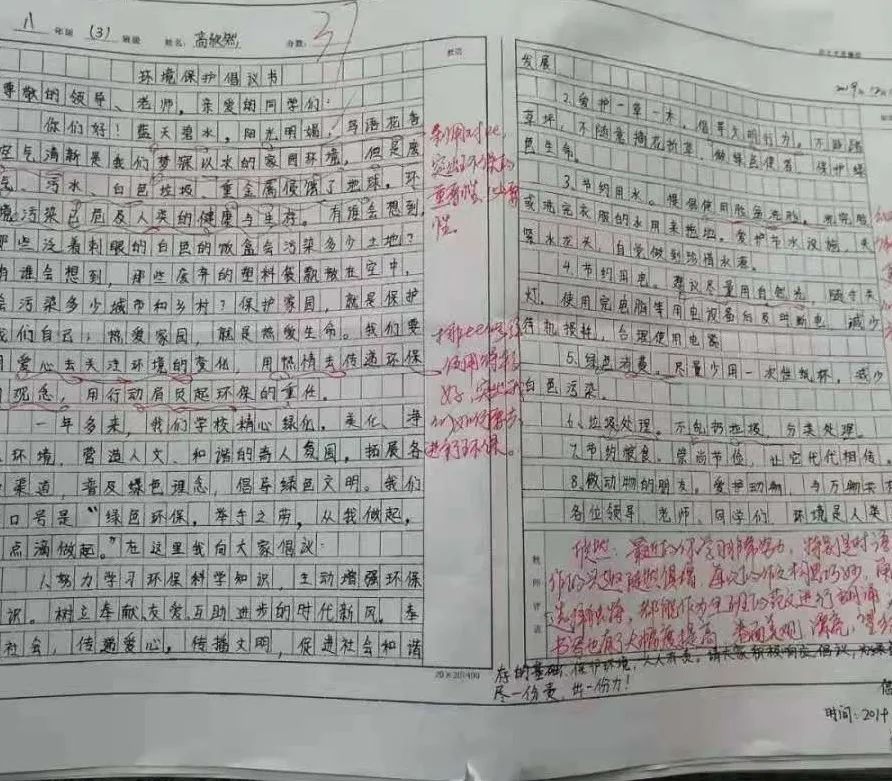 八 年级 (3) 班级 姓名: 高欣然 分数: 37
环境保护倡议书
尊敬的领导、老师,亲爱的同学们:
你们好!蓝天碧水,阳光明媚,鸟语花香
空气清新是我们梦寐以求的家园环境,但是废
气、污水、白色垃圾、重金属侵袭了地球,环
境污染已危及人类的健康与生存。有谁会想到,
那些泛着刺眼的白色的饭盒会污染多少土地?
有谁会想到,那些废弃的塑料袋飘散在空中,
会污染多少城市和乡村?保护家园,就是保护
我们自己;热爱家园,就是热爱生命。我们要
用爱心去关注环境的变化,用热情去传递环保
观念,用行动肩负起环保的重任。
一年多来,我们学校精心绿化、美化、净
环境,营造人文、和谐的育人氛围,拓展各
渠道,普及绿色理念,倡导绿色文明。我们
口号是“绿色环保,举手之劳,从我做起,
点滴做起。”在这里我向大家倡议:
1.努力学习环保科学知识,主动增强环保
识。树立奉献友爱互助进步的时代新风。奉
社会,传递爱心,传播文明,促进社会和谐
20×20=400
教语
排比句
使用得较
好,
进行环保。
发展
2.爱护一草一木,倡导文明行为。不践踏
草坪,不随意摘花折草,做绿色使者,保护绿
色生命。
3.节约用水。提倡使用脸盆洗脸,洗完脸
或洗完衣服的水用来拖地。爱护节水设施,关
紧水龙头,自觉做到珍惜水源。
4.节约用电。建议尽量用自然光,随手关
灯,使用完电脑等用电设备后及时断电,减少
待机损耗,合理使用电器
5.绿色消费。尽量少用一次性纸杯,减少
白色污染。
6.垃圾处理。不乱扔垃圾,分类处理。
7.节约粮食。崇尚节俭,让它代代相传。
8.做动物的朋友。爱护动物,与万物共
各位领导、老师、同学们,环境是人类
教师评语
欣然:最近的你学习非常努力,特别是对语
作的兴趣陡然倍增,每次的作文构思巧妙,
都能作为全班的范文进行朗诵
书写也有了大幅度提高,卷面美观、漂亮,望
存的基础,保护环境,人人有责。请大家积极响应倡议,为
尽一份责,出一份力!
时间:2019